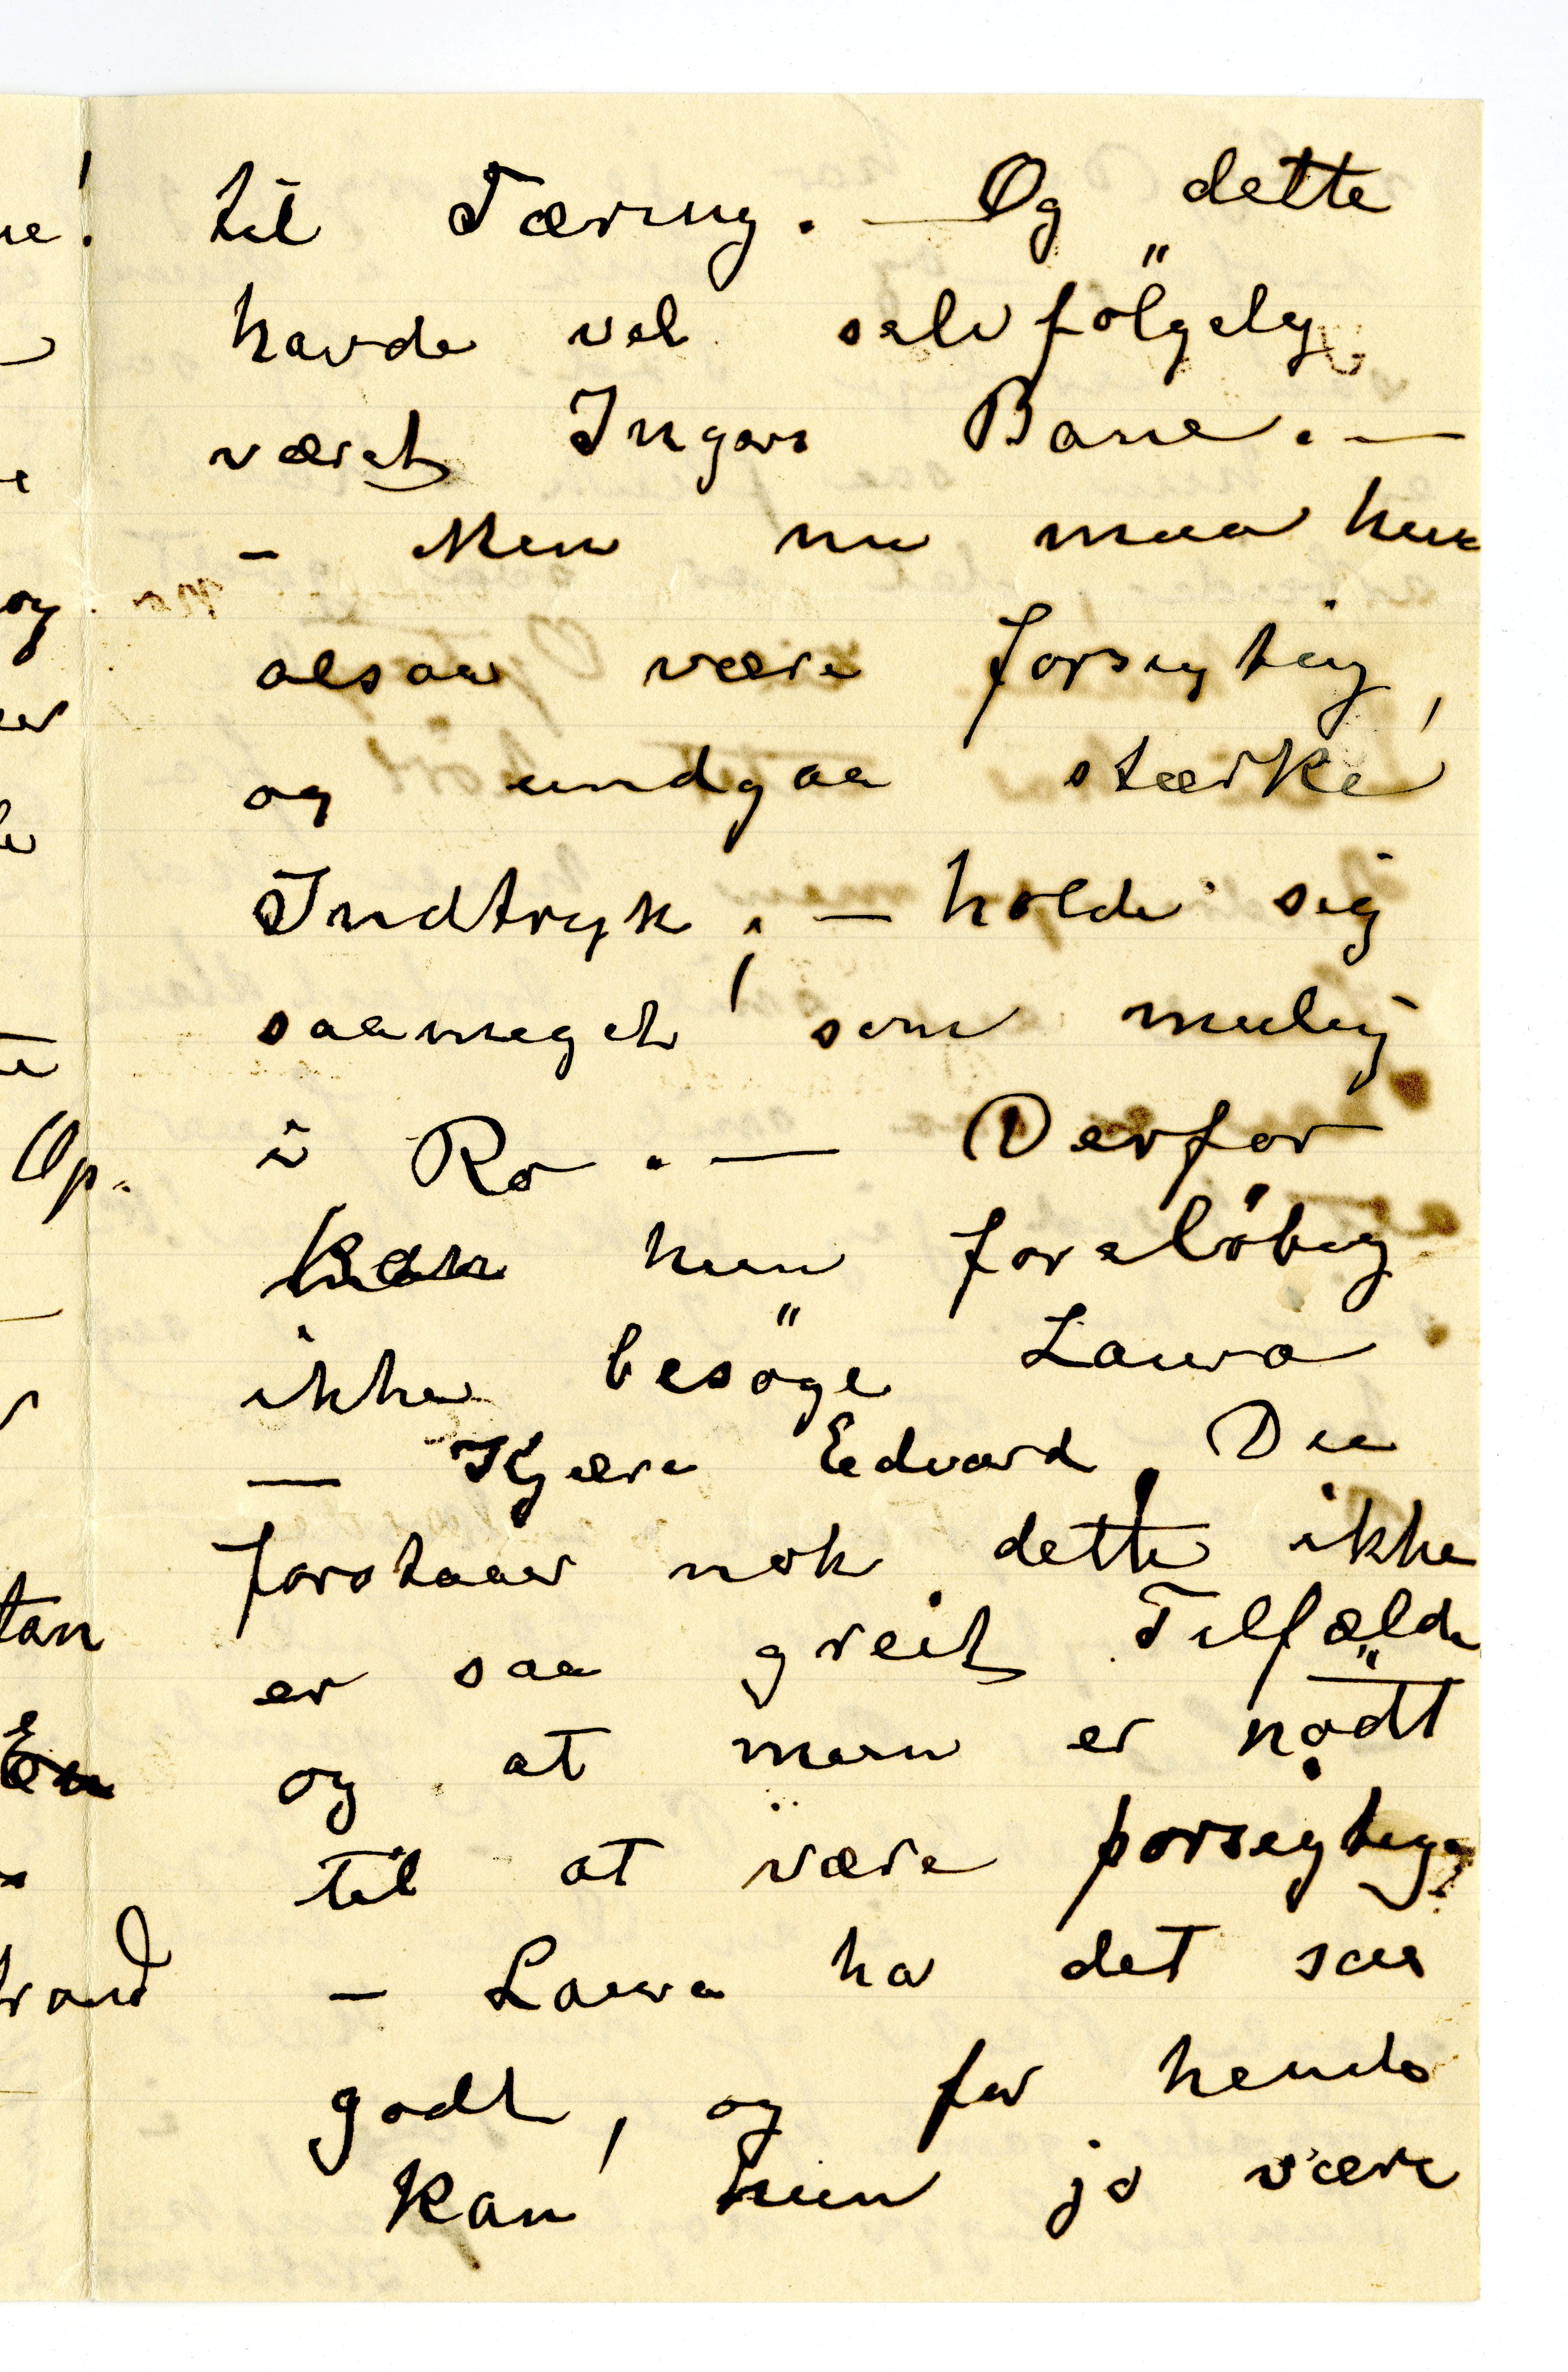 til Tæring. — Og dette
havde vel selvfölgelig
været Ingers Bane. —
- Men nu maa hun
alsaa være forsigtig,
og undgaa stærke
Indtryk; — holde sig
saameget som mulig
i Ro. — Derfor
kan hun foreløbig
ikke besöge Laura
— Kjære Edvard, Du
forstaar nok, dette ikke
er saa greit Tilfælde
og at man er nödt
til at være forsigtig,
- Laura ha det saa
godt, og for hende
kan hun jo være